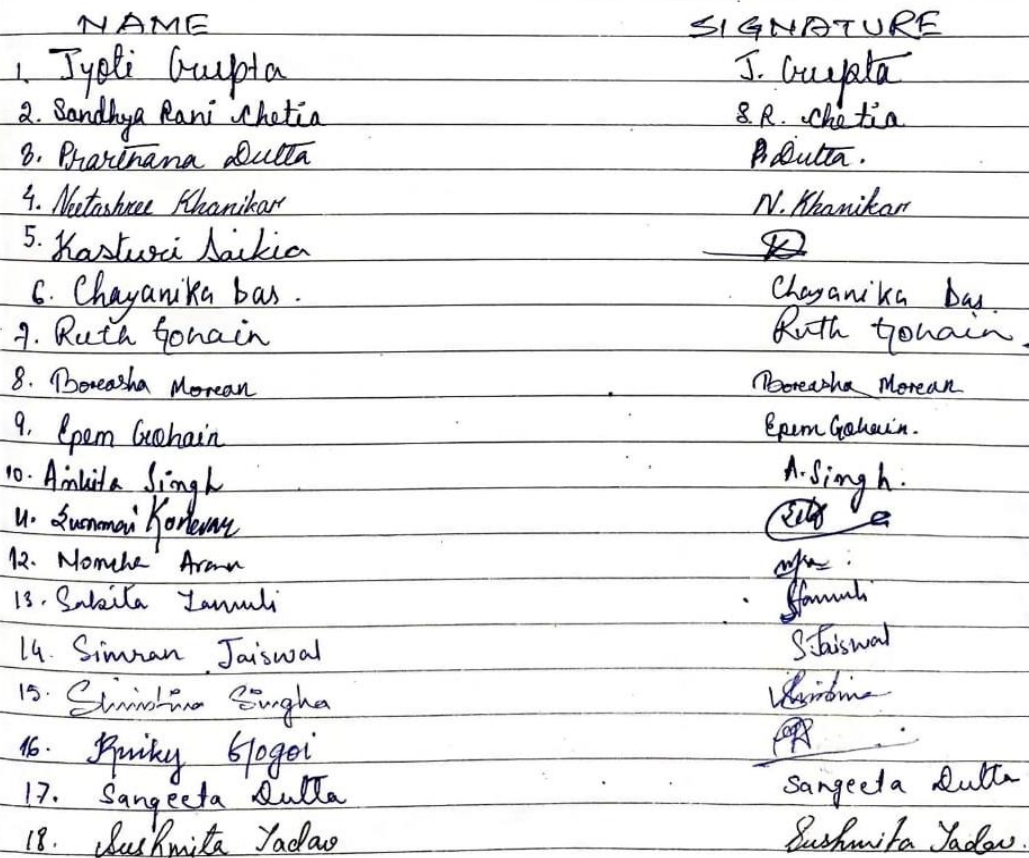 NAME SIGNATURE
1. Jyoti Gupta J. Gupta
2. Sandhya Rani Chetia S.R. Chetia
3. Prarthana Dutta P. Dutta.
4. Neetashree Khanikar N. Khanikar
5. Kasturi Saikia
6. Chayanika Das. Chayanika Das
7. Ruth Gohain Ruth Gohain.
8. Boreasha Morean Boreasha Morean
9. Epem Gohain Epem Gohain.
10. Ankita Singh A. Singh.
11.
12.
13. Sabita Tamuli STamuli
14. Simran Jaiswal S. Jaiswal
15. Singha
16. Gogoi
17. Sangeeta Dutta Sangeeta Dutta
18. Sushmita Yadav Sushmita Yadav.